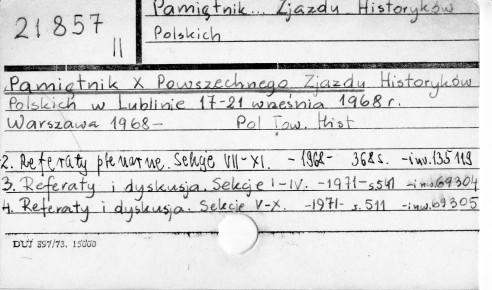 Pamiętnik... Zjazdu Historyków
Polskich
21857
II
Pamiętnik X Powszechnego Zjazdu Historyków
Polskich w Lublinie 17-21 września 1968 r.
Warszawa 1968- Pol Tow. Hist
2. Referaty plenarne. Sekcje VII-XI. -1968- 368 s. -inw.135119
3. Referaty i dyskusja. Sekcje I-IV. -1971- s.541 -inw.69304
4. Referaty i dyskusja. Sekcje V-X. -1971- s.511 -inw.69305
DUJ 897/73. 15000